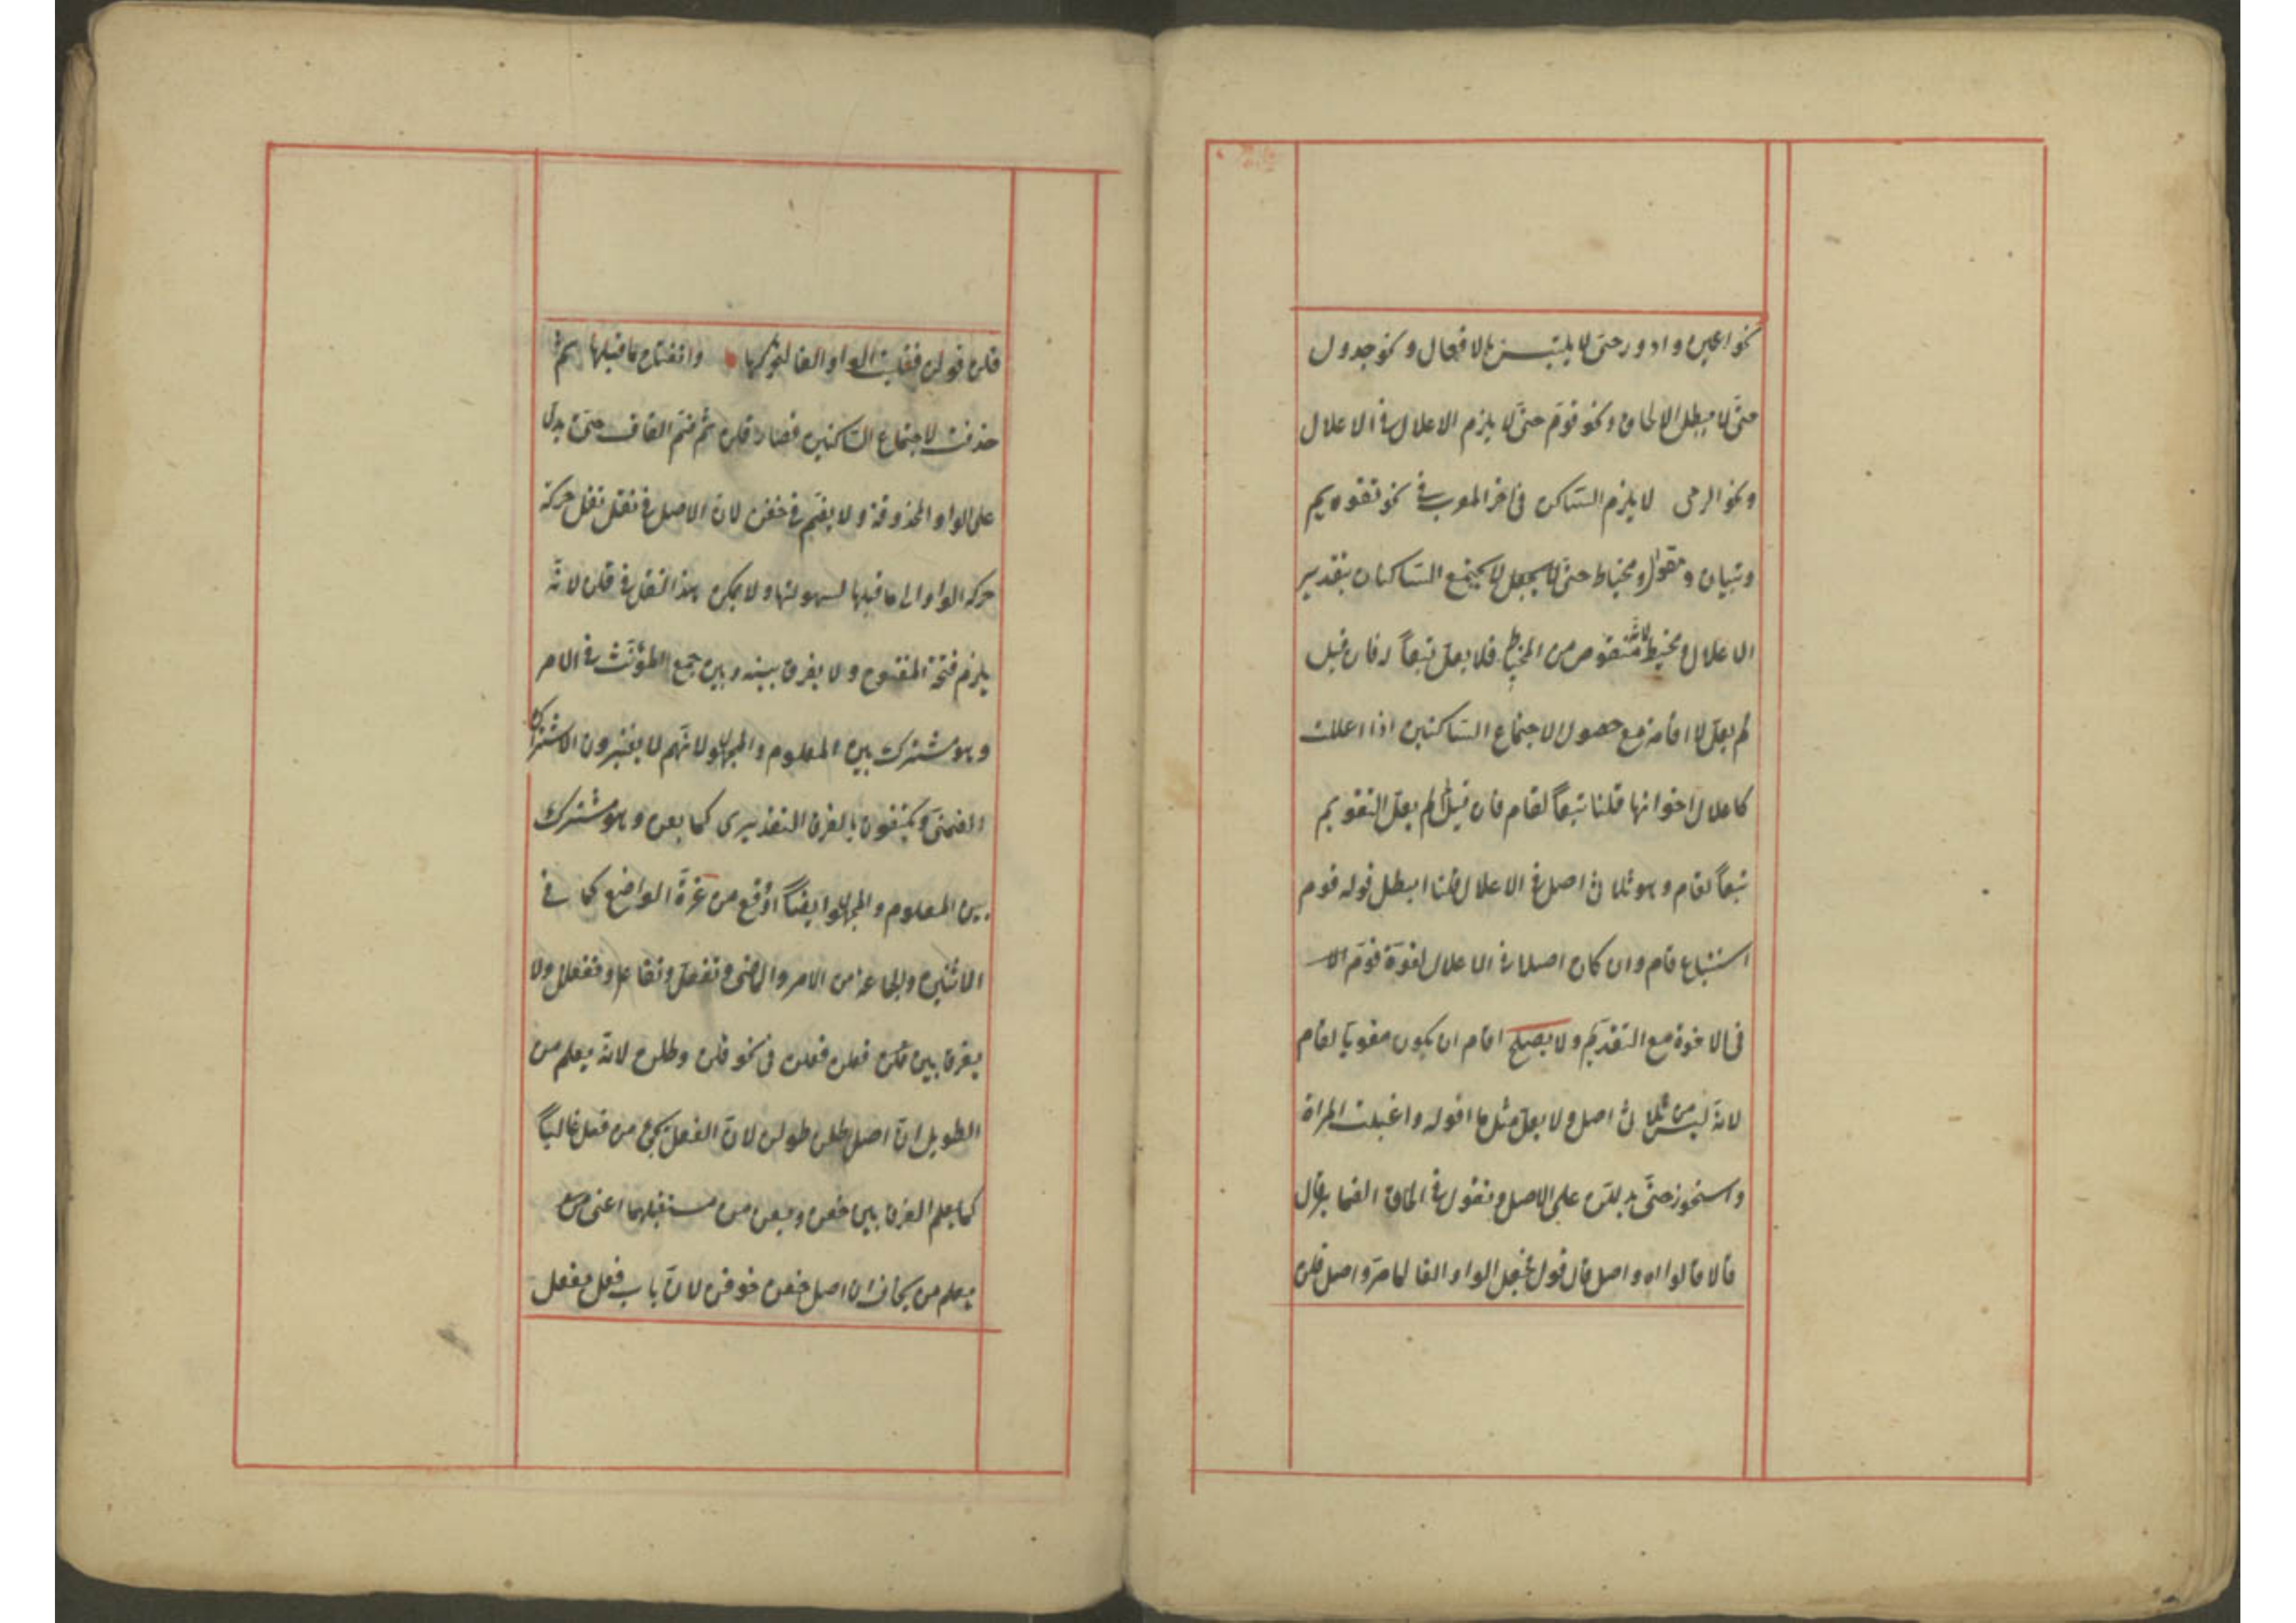 نحو اعين و ادور حتى لا يلتبس بالافعال و نحو جدول
حتّى لا يبطل الالحاق و نحو قوّم حتّى لا يلزم الاعلال فى الاعلال
و نحو الرمى لا يلزم الساكن فى اخر المعرب فى نحو تقويم
و تبيان و مقوال و مخياط حتّى لا يجتمع الساكنان بتقدير
الاعلال و مخيط لانّه منقوص من المخياط فلا يعلّ تبعاً له فان قيل
لم يعلّ الاقامة مع حصول الاجتماع الساكنين اذا اعلت
كاعلال اخواتها قلنا تبعاً لقام فان قيل لم لم يعلّ التقويم
تبعاً لقام و هو ثلاثى اصل فى الاعلال قلنا ابطل قوله قوم
استتباع قام و ان كان اصلا فى الاعلال لقوّة قوّم
فى الاخوة مع التقديم و لا يصلح اقام ان يكون مقويا لقام
لانّه ليس من ثلاثى اصل و لا يعلّ مثل ما اقوله و اغيلت المراة
و استحوذ حتّى يدللن على الاصل و تقول فى الحاق الضمائر قال
قالا قالوا اه و اصل قال قول فجعل الواو الفا لما مرّ و اصل قلن
قلن قولن فقلبت الواو الفا لتحركها و انفتاح ما قبلها ثمّ
حذفت لاجتماع الساكنين فصار قلن ثمّ ضمّ القاف حتّى يدلّ
على الواو المحذوفة و لا يضمّ فى خفن لان الاصل فى نقل نقل حركة
حركة الواو الى ما قبلها لسهولتها و لا يمكن هذا النقل فى قلن لانّه
يلزم فتحة المفتوح و لا يفرق بينه و بين جمع المؤنّث فى الامر
و هو مشترك بين المعلوم و المجهول لانّهم لا يعتبرون الاشتراك
الضمنىّ و يكتفون بالفرق التقديرى كما بعن و هو مشترك
بين المعلوم و المجهول ايضاً او قع من غرّة الواضع كما فى
الاثنين و الجماعة من الامر و الماضى و تفعل و تفاعل و تفعلل و لا
يفرق بين فعلن فعلن فى نحو قلن و طلن لانّه يعلم من
الطويل انّ اصل طلن طولن لانّ الفعيل يجئ من فعل غالباً
كما يعلم الفرق بين خفن و بعن من مستقبلهما اعنى
يعلم من يخاف ان اصل خفن خوفن لانّ باب فعل يفعل